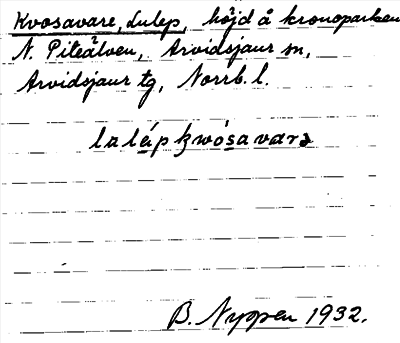 Kvosavare, Lulep, höjd å kronoparken
N. Piteälven, Arvidsjaur sn,
Arvidsjaur tg, Norrb. l.
B. Nyppen 1932.